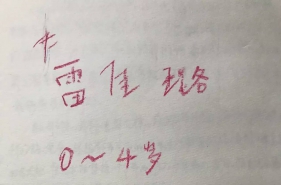 雷佳璐
0~4岁